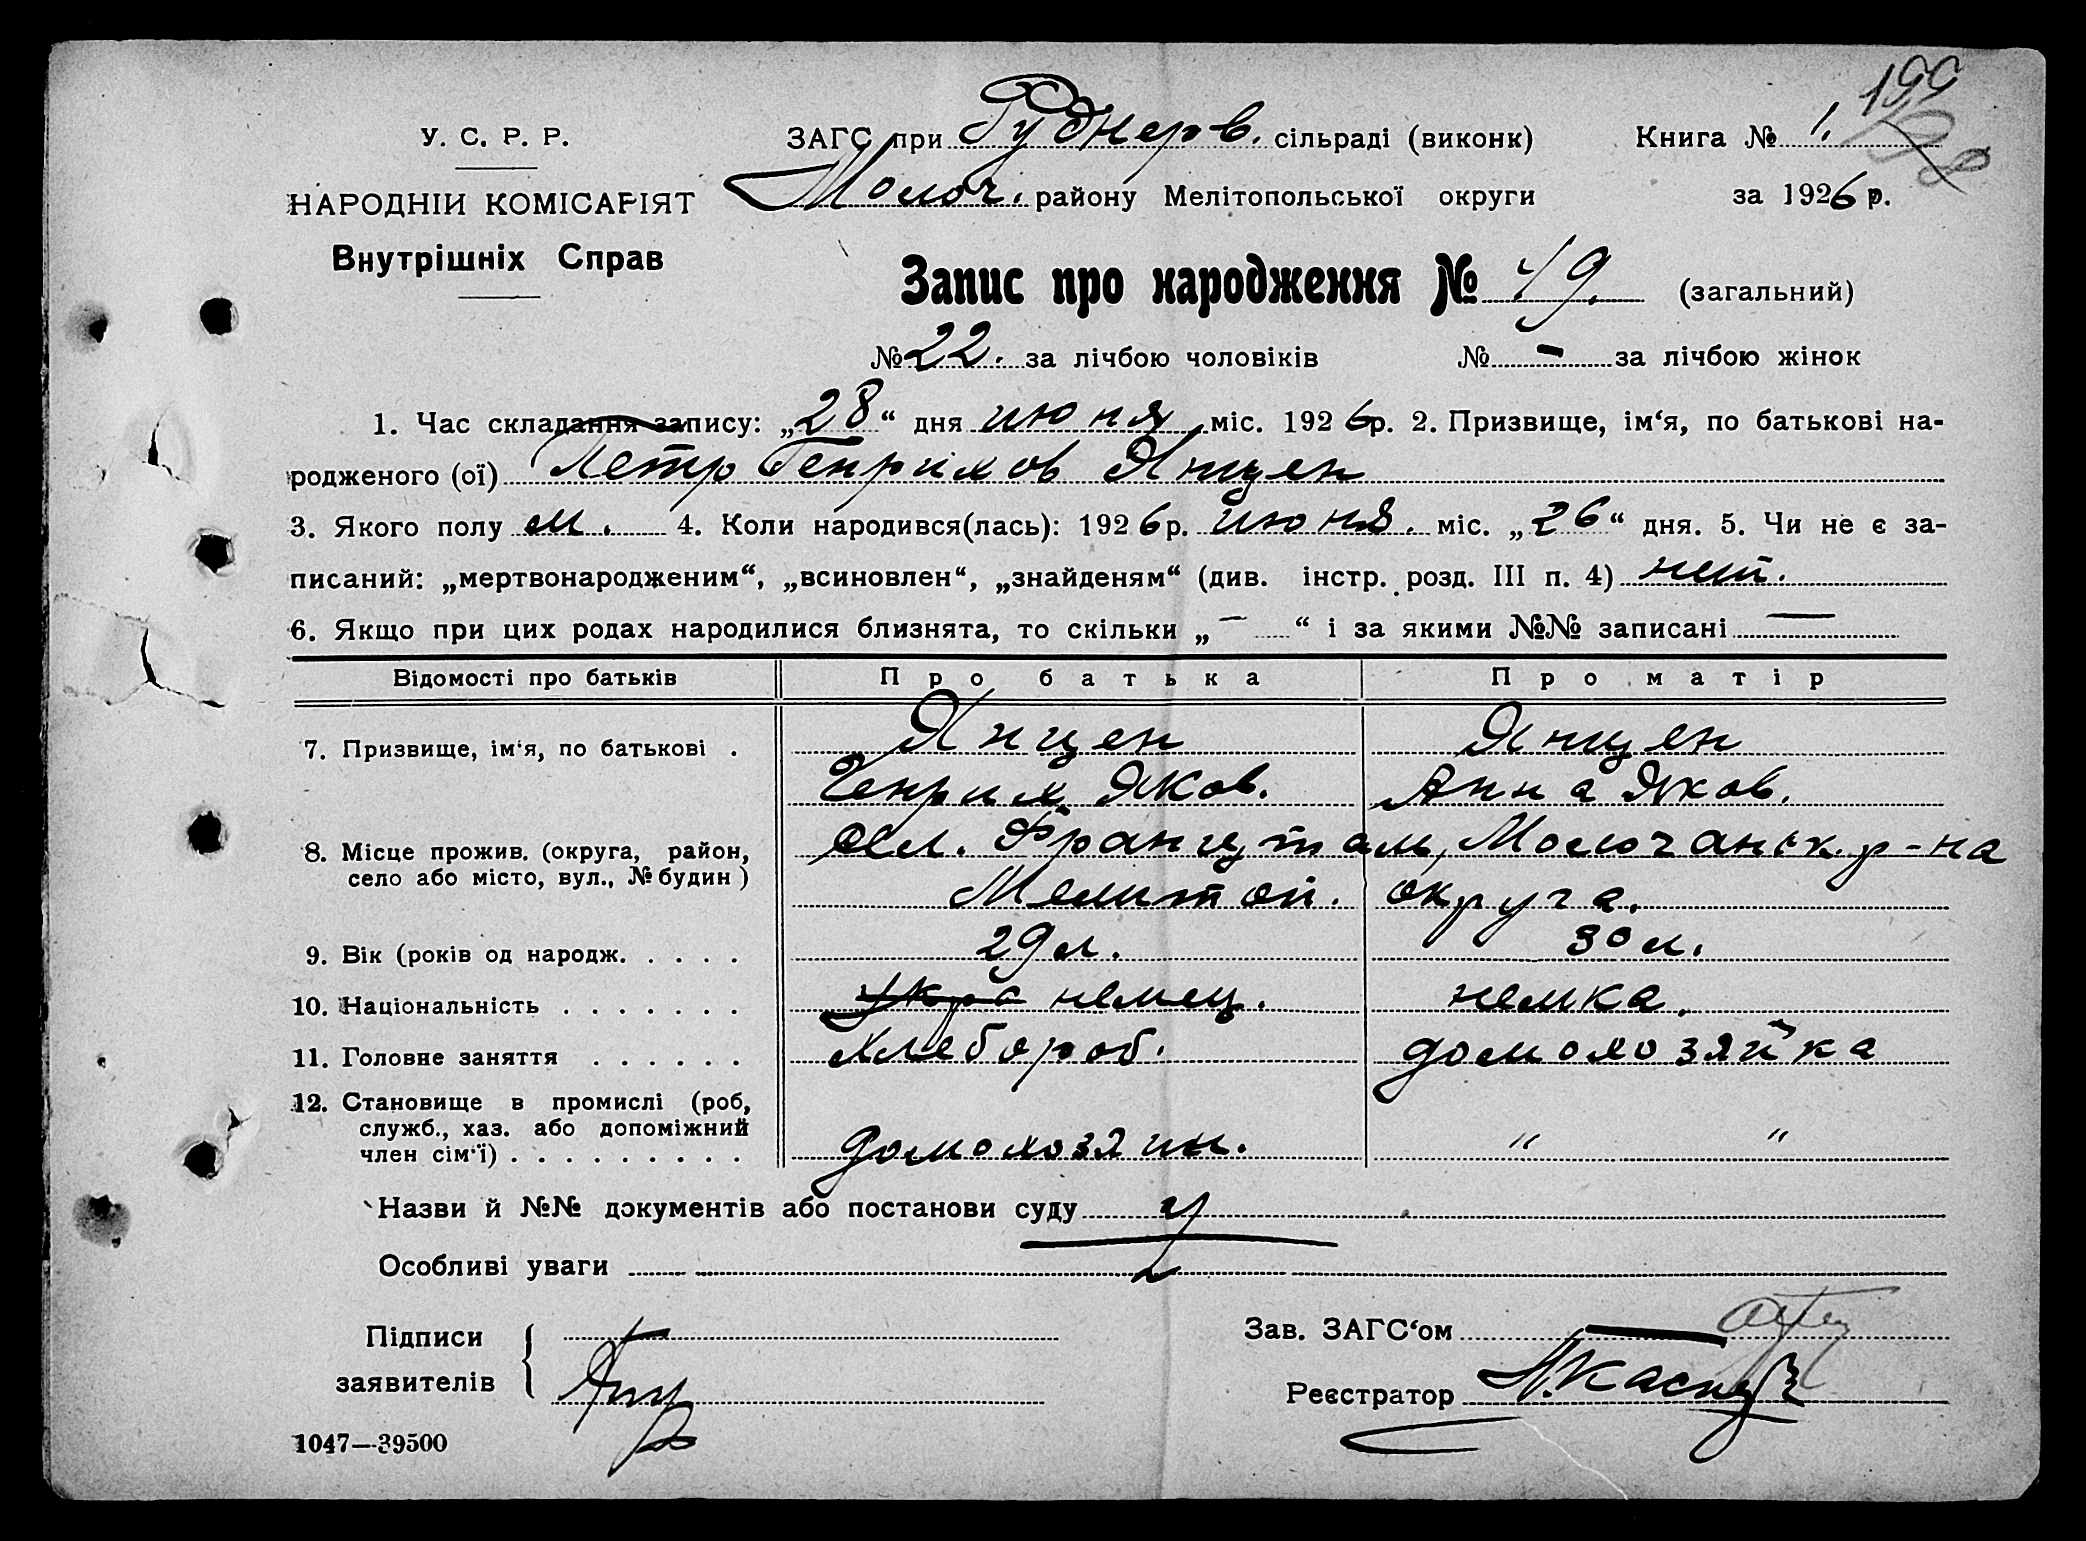 199
У. С. Р. Р.
ЗАГС при Руднерв. сільраді (виконк)
Книга № 1.
НАРОДНІЙ КОМІСАРІЯТ
Молоч. району Мелітопольської округи
за 1926 р.
Внутрішніх Справ
Запис про народження № 49. (загальний)
№ 22. за лічбою чоловіків № - за лічбою жінок
1. Час складання запису: „28“ дня июня міс. 1926р. 2. Призвище, ім‘я, по батькові на-
родженого (ої) Петр Генрихов Янцен
3. Якого полу м. 4. Коли народився(лась): 1926р. июня. міс. „26“ дня. 5. Чи не є за-
писаний: „мертвонародженим“, „всиновлен“, „знайденям“ (див. інстр. розд. III п. 4) нет.
6. Якщо при цих родах народилися близнята, то скільки „—“ і за якими №№ записані —
Відомості про батьків Про батька Про матір
7. Призвище, ім‘я, по батькові . Янцен Янцен
Генрих Яков. Анна Яков.
8. Місце прожив. (округа, район, село або місто, вул., № будин) Францталь, Молочанск. р-на
Мелитоп. округа.
9. Вік (років од народж. . . . . 29 л. 30 л.
10. Національність . . . . . . . Укра немец. немка.
11. Головне заняття . . . . . . Хлебороб. домохозяйка
12. Становище в промислі (роб, служб., хаз. або допоміжний член сім‘ї) . . . . . . . . . домохозяин. " "
Назви й №№ документів або постанови суду
Особливі уваги
Підписи
заявителів
Зав. ЗАГС‘ом
Реєстратор
1047—39500